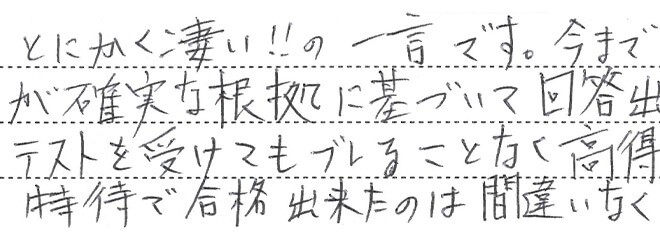 とにかく凄い!!の一言です。今まで
が確実な根拠に基づいて回答出
テストを受けてもブレることなく高得
特待で合格出来たのは間違いなく